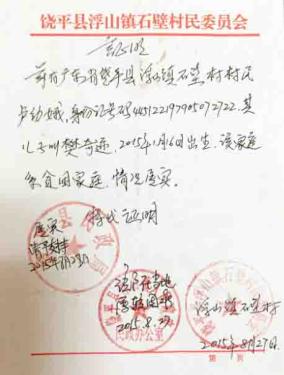 饶平县浮山镇石壁村民委员会
证明
兹有广东省饶平县浮山镇石壁村村民
卢幼娥，身份证号码445122197905072722. 其
儿子叫樊奇迹，2015年1月16日出生，该家庭
系贫困家庭，情况属实。
特此证明
属实
2015年8月28日
2015.8.27
浮山镇石壁村
2015年8月27日.
民政办公室
第 页